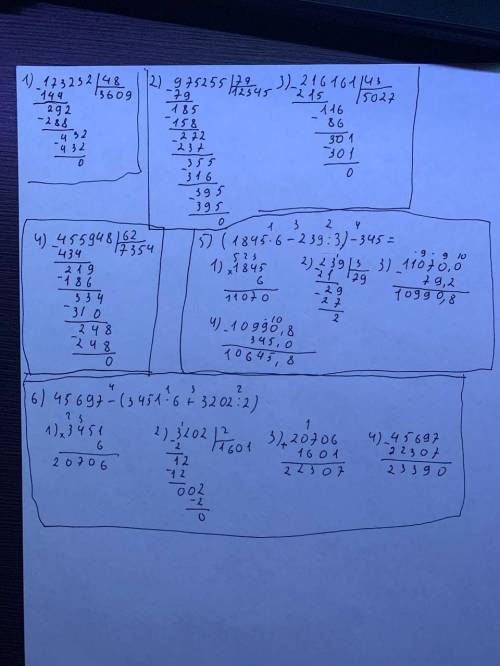 1) -173232 |48
149 3609
292
-288
432
-432
0
2) 975255 |79
-79 12345
185
-158
272
-237
355
-316
395
-395
0
3) -216161 |43
215 5027
116
-86
301
-301
0
4) -455948 |62
434 7354
219
-186
334
-310
248
-248
0
1 3 2 4
5) (1845·6-239:3)-345=
5 2 3
1) x1845
6
11070
2) -239 |3
21 79
-29
27
2
3) -11070,0
79,2
10990,8
4) -10990,8
345,0
10645,8
4 1 3 2
6) 45697-(3451·6+3202:2)
2 3
1) x3451
6
20706
2) -3202 |2
2 1601
12
-12
002
-2
0
1
3) +20706
1601
22307
4) -45697
22307
23390